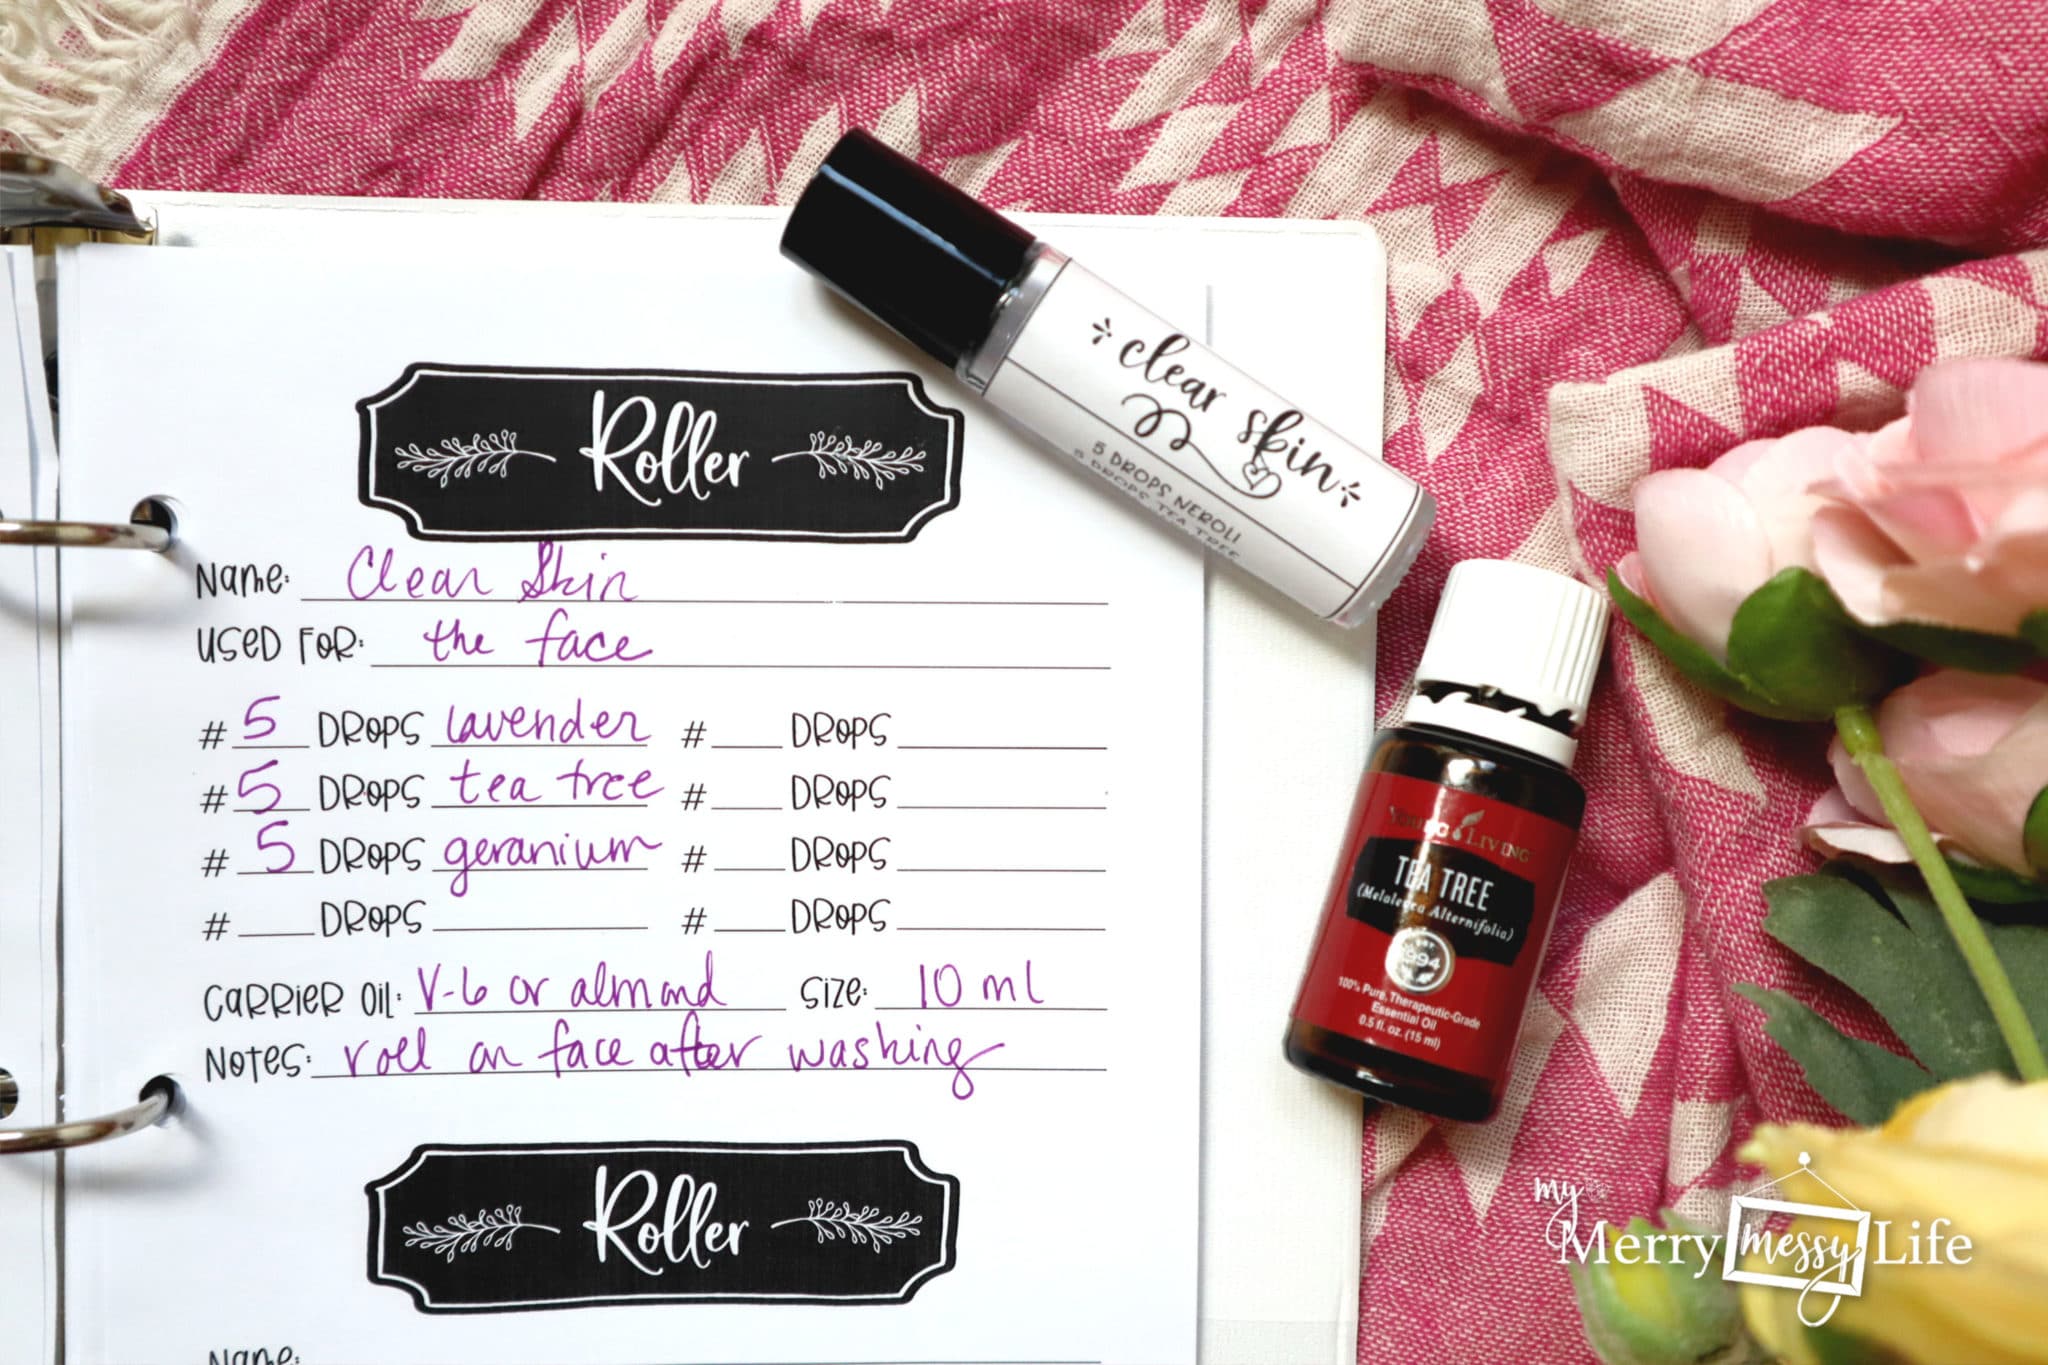 Roller
Name: Clear Skin
Used For: the face
# 5 Drops lavender # Drops
# 5 Drops tea tree # Drops
# 5 Drops geranium # Drops
# Drops # Drops
Carrier Oil: V-6 or almond Size: 10 ml
Notes: roll on face after washing
Roller
Name:
clear skin
5 DROPS NEROLI
5 DROPS TEA TREE
YOUNG LIVING
TEA TREE
(Melaleuca Alternifolia)
1994
100% Pure, Therapeutic-Grade
Essential Oil
0.5 fl. oz. (15 ml)
my
Merry messy Life